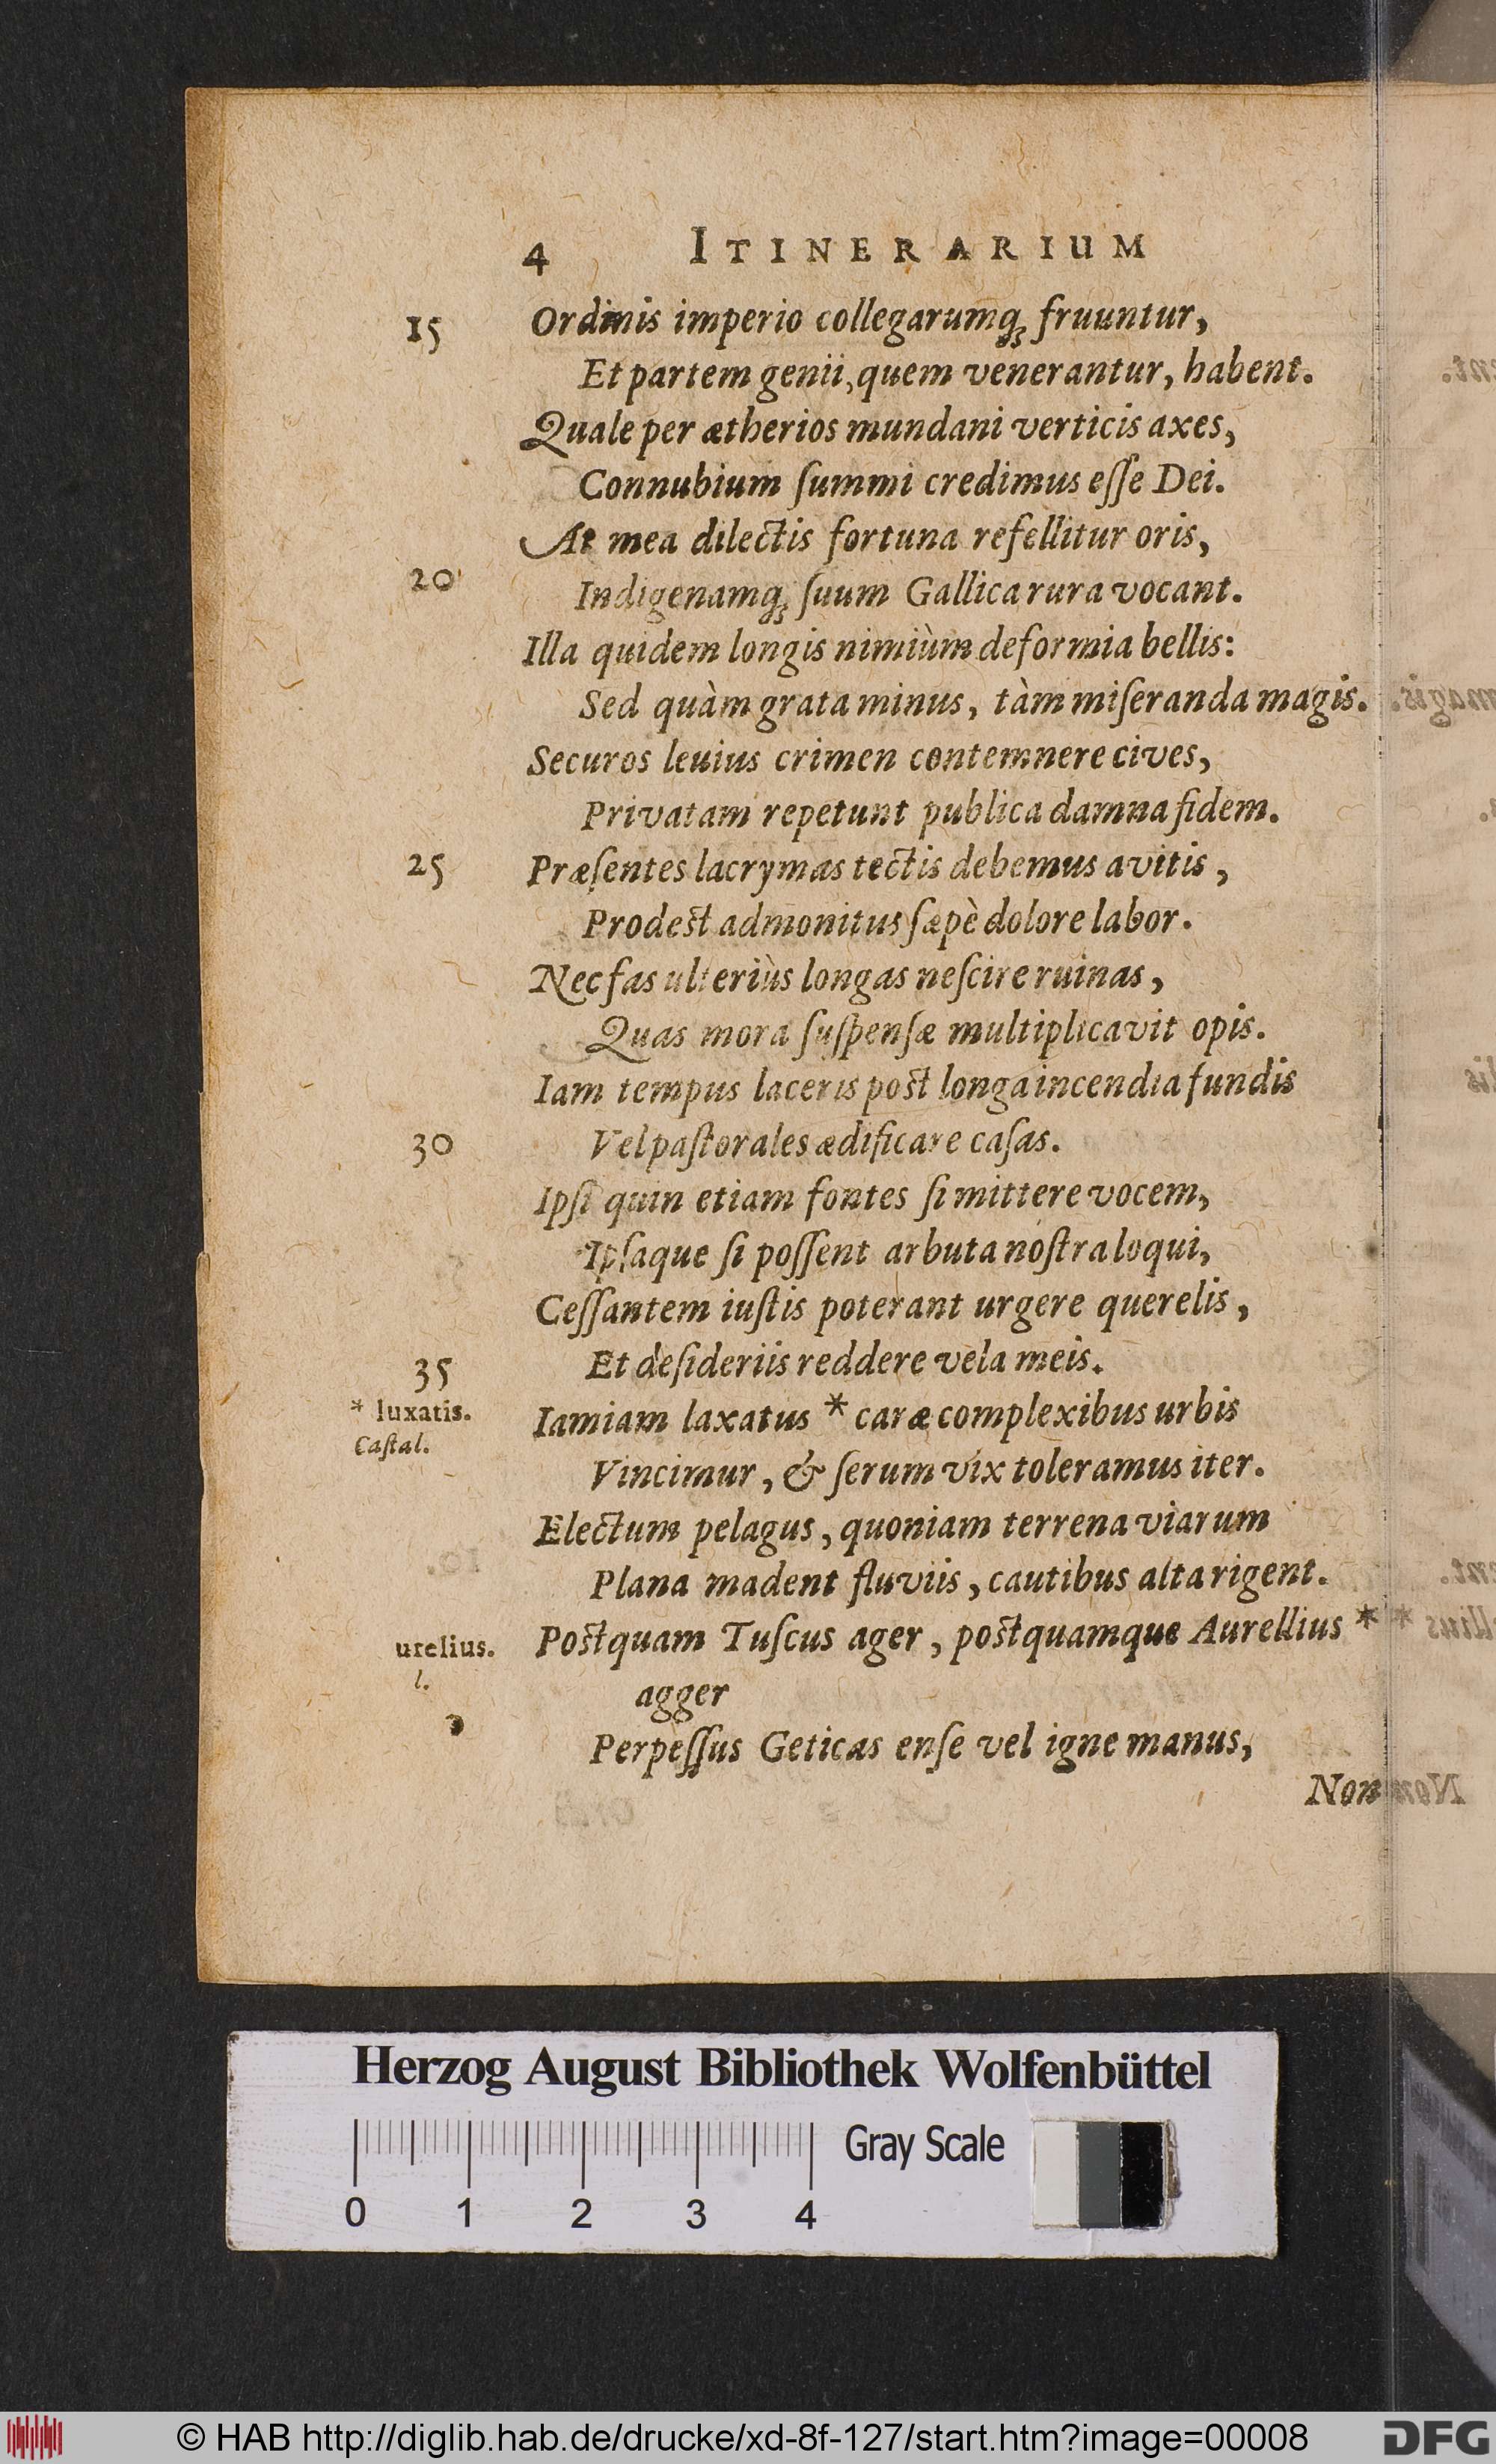 4 ITINERARIUM
15 Ordinis imperio collegarumq́ꝫ fruuntur,
Et partem genii, quem venerantur, habent.
Quale per ætherios mundani verticis axes,
Connubium ſummi credimus eſſe Dei.
At mea dilectis fortuna refellitur oris,
20 Indigenamq́ꝫ ſuum Gallica rura vocant.
Illa quidem longis nimiùm deformia bellis:
Sed quàm grata minus, tàm miſeranda magis.
Securos leuius crimen contemnere cives,
Privatam repetunt publica damna fidem.
25 Præſentes lacrymas tectis debemus avitis,
Prodest admonitus ſæpè dolore labor.
Nec fas ulteriùs longas neſcire ruinas,
Quas mora ſuſpenſæ multiplicavit opis.
Iam tempus laceris post longa incendia fundis
30 Vel paſtorales ædificare caſas.
Ipſi quin etiam fontes ſi mittere vocem,
Ipſaque ſi poſſent arbuta noſtra loqui,
Ceſſantem iuſtis poterant urgere querelis,
35 Et deſideriis reddere vela meis.
* luxatis. Iamiam laxatus * caræ complexibus urbis
Caſtal.
Vincimur, & ſerum vix toleramus iter.
Electum pelagus, quoniam terrena viarum
Plana madent fluviis, cautibus alta rigent.
urelius. Postquam Tuſcus ager, postquamque Aurellius *
l. agger
Perpeſſus Geticas enſe vel igne manus,
Non
Herzog August Bibliothek Wolfenbüttel
Gray Scale
0 1 2 3 4
© HAB http://diglib.hab.de/drucke/xd-8f-127/start.htm?image=00008 DFG